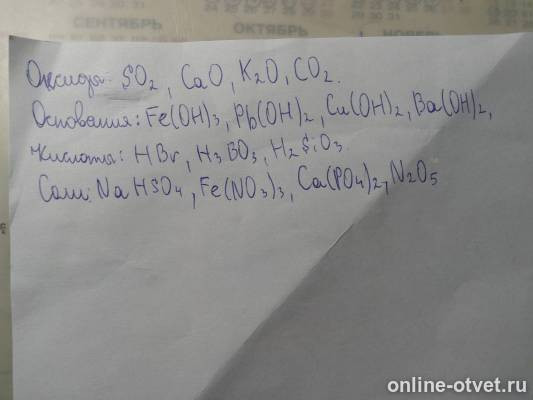 СЕНТЯБРЬ
ОКТЯБРЬ
Оксиды: SO2, CaO, K2O, CO2.
Основания: Fe(OH)3, Pb(OH)2, Cu(OH)2, Ba(OH)2,
Кислоты: HBr, H3BO3, H2SiO3.
Соли: NaHSO4, Fe(NO3)3, Ca(PO4)2, N2O5
online-otvet.ru